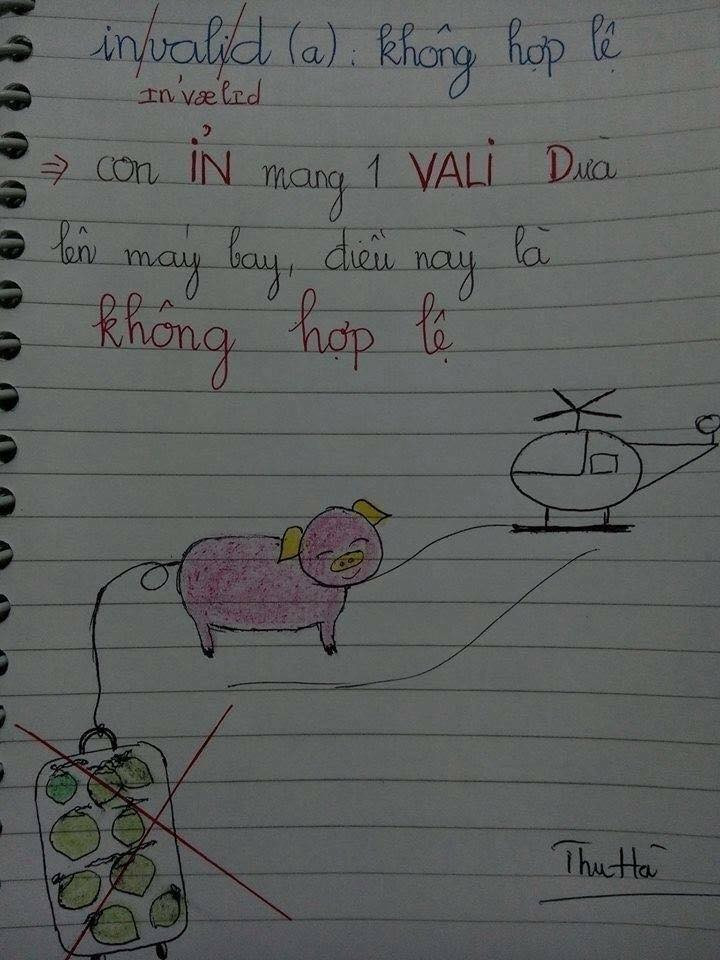 in/vali/d (a): không hợp lệ
ɪn'vælɪd
⇒ con ỈN mang 1 VALI Dừa
lên máy bay, điều này là
không hợp lệ
Thu Hà